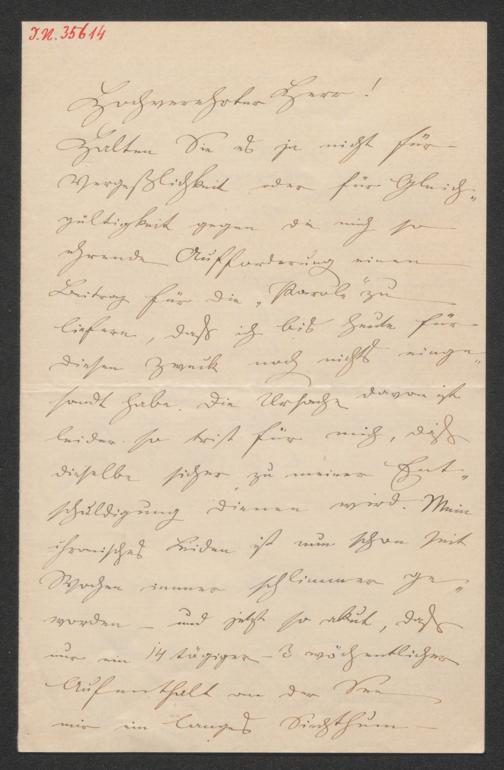 J.N. 35614
Hochverehrter Herr!
Halten Sie es ja nicht für
Vergeßlichkeit oder für Gleich-
gültigkeit gegen die mich so
ehrende Aufforderung einen
Beitrag für die „Parole" zu
liefern, daß ich bis heute für
diesen Zweck noch nichts einge-
sandt habe. Die Ursache davon ist
leider so trist für mich, daß
dieselbe sicher zu meiner Ent-
schuldigung dienen wird. Mein
chronisches Leiden ist nun schon seit
Wochen immer schlimmer ge-
worden – und jetzt so akut, daß
nur ein 14 tägiger – 3 wöchentlicher
Aufenthalt an der See
mir ein langes Siechthum